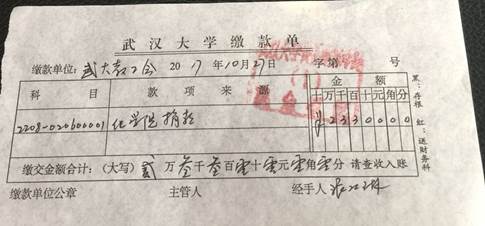 武汉大学缴款单
缴款单位：武大教工会 2017年10月27日 字第 号
科目 款项来源 金额
十万千百十元角分
2208-020600001 化学院捐款 ¥2330000
缴交金额合计：（大写）贰万叁千叁百零十零元零角零分 请查收入账
缴款单位公章 主管人 经手人
黑：存根 红：送财务科